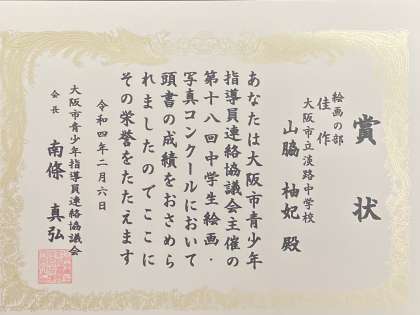 賞状
絵画の部
佳作
大阪市立淡路中学校
山脇 柚妃 殿
あなたは大阪市青少年
指導員連絡協議会主催の
第十八回中学生絵画・
写真コンクールにおいて
頭書の成績をおさめら
れましたのでここに
その栄誉をたたえます
令和四年二月六日
大阪市青少年指導員連絡協議会
会長 南條 真弘